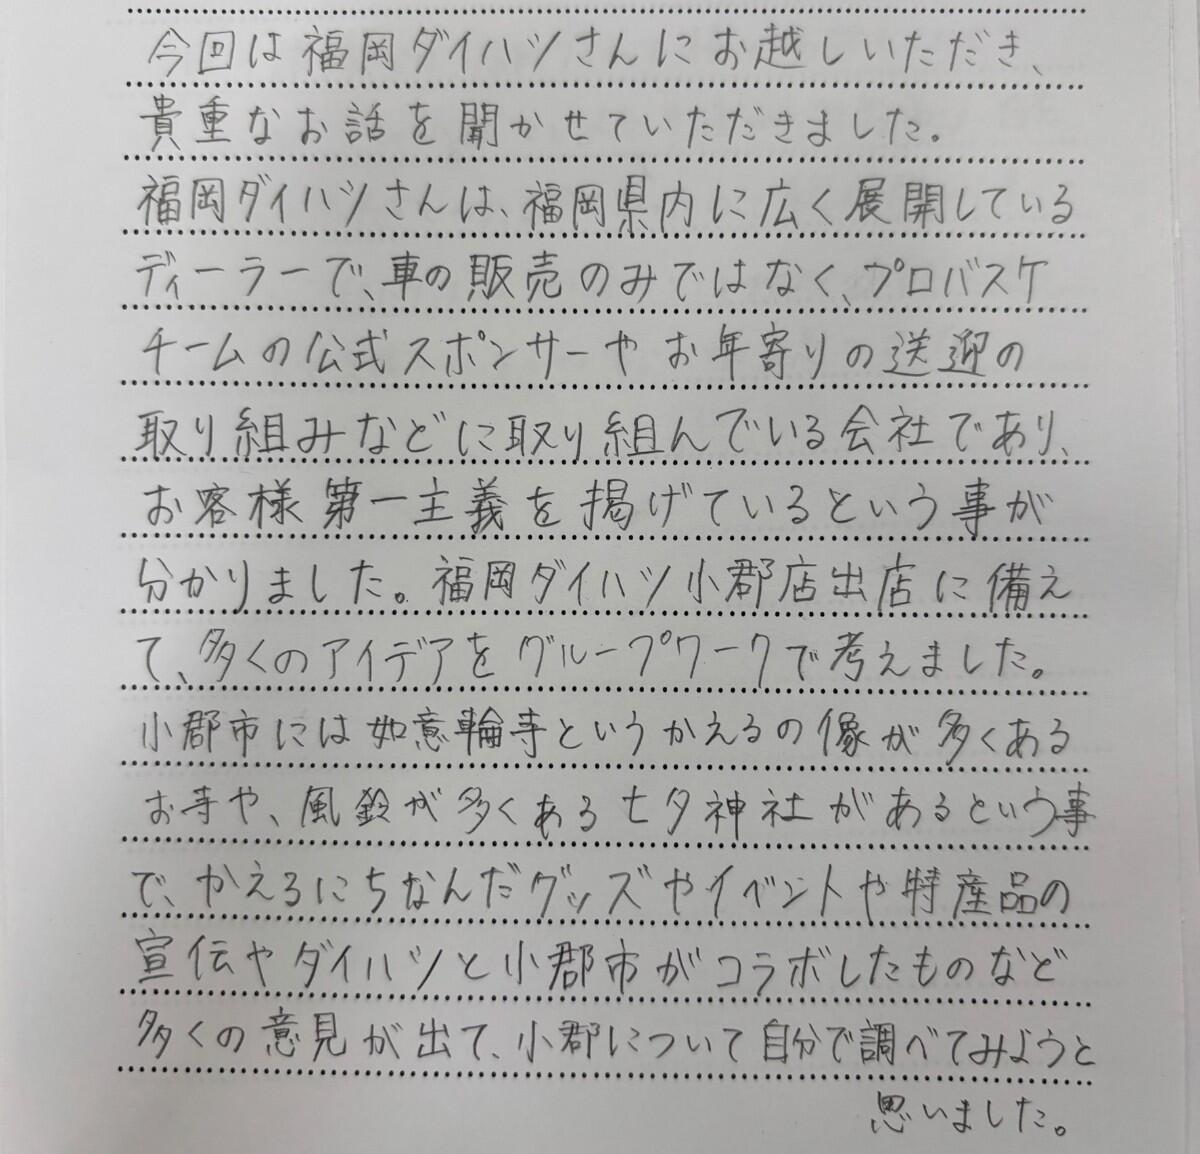 今回は福岡ダイハツさんにお越しいただき、
貴重なお話を聞かせていただきました。
福岡ダイハツさんは、福岡県内に広く展開している
ディーラーで、車の販売のみではなく、プロバスケ
チームの公式スポンサーやお年寄りの送迎の
取り組みなどに取り組んでいる会社であり、
お客様第一主義を掲げているという事が
分かりました。福岡ダイハツ小郡店出店に備え
て、多くのアイデアをグループワークで考えました。
小郡市には如意輪寺というかえるの像が多くある
お寺や、風鈴が多くある七夕神社があるという事
で、かえるにちなんだグッズやイベントや特産品の
宣伝やダイハツと小郡市がコラボしたものなど
多くの意見が出て、小郡について自分で調べてみようと
思いました。